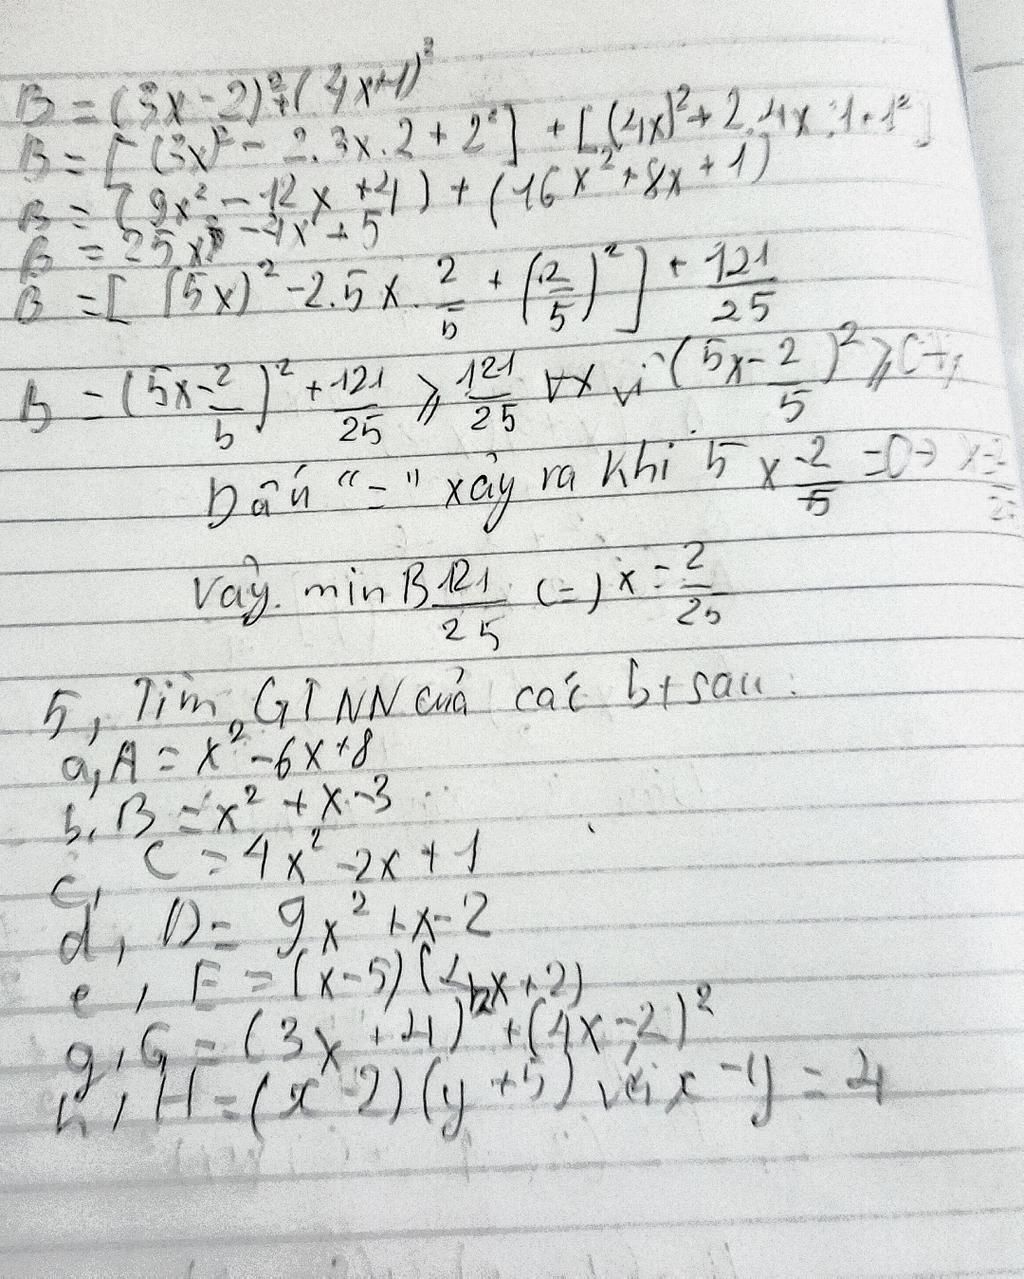 B = (3x - 2)² + (4x+1)²
B = [(3x)² - 2.3x.2 + 2²] + [(4x)² + 2.4x.1+1²]
B = (9x² - 12x + 4) + (16x² + 8x + 1)
B = 25x² - 4x + 5
B = [(5x)² - 2.5x.2/5 + (2/5)²] + 121/25
B = (5x - 2/5)² + 121/25 ≥ 121/25 ∀x vì (5x - 2/5)² ≥
Dấu "=" xảy ra khi 5x - 2/5 = 0 →
Vậy. min B 121/25 (=) x = 2/25
5, Tìm GTNN của các bt sau:
a, A = x² - 6x + 8
b, B = x² + x - 3
c, C = 4x² - 2x + 1
d, D = 9x² + x - 2
e, E = (x - 5) x + 2)
g, G = (3x + 4)² + (4x - 2)²
h, H = (x - 2)(y + 5) với x - y = 4